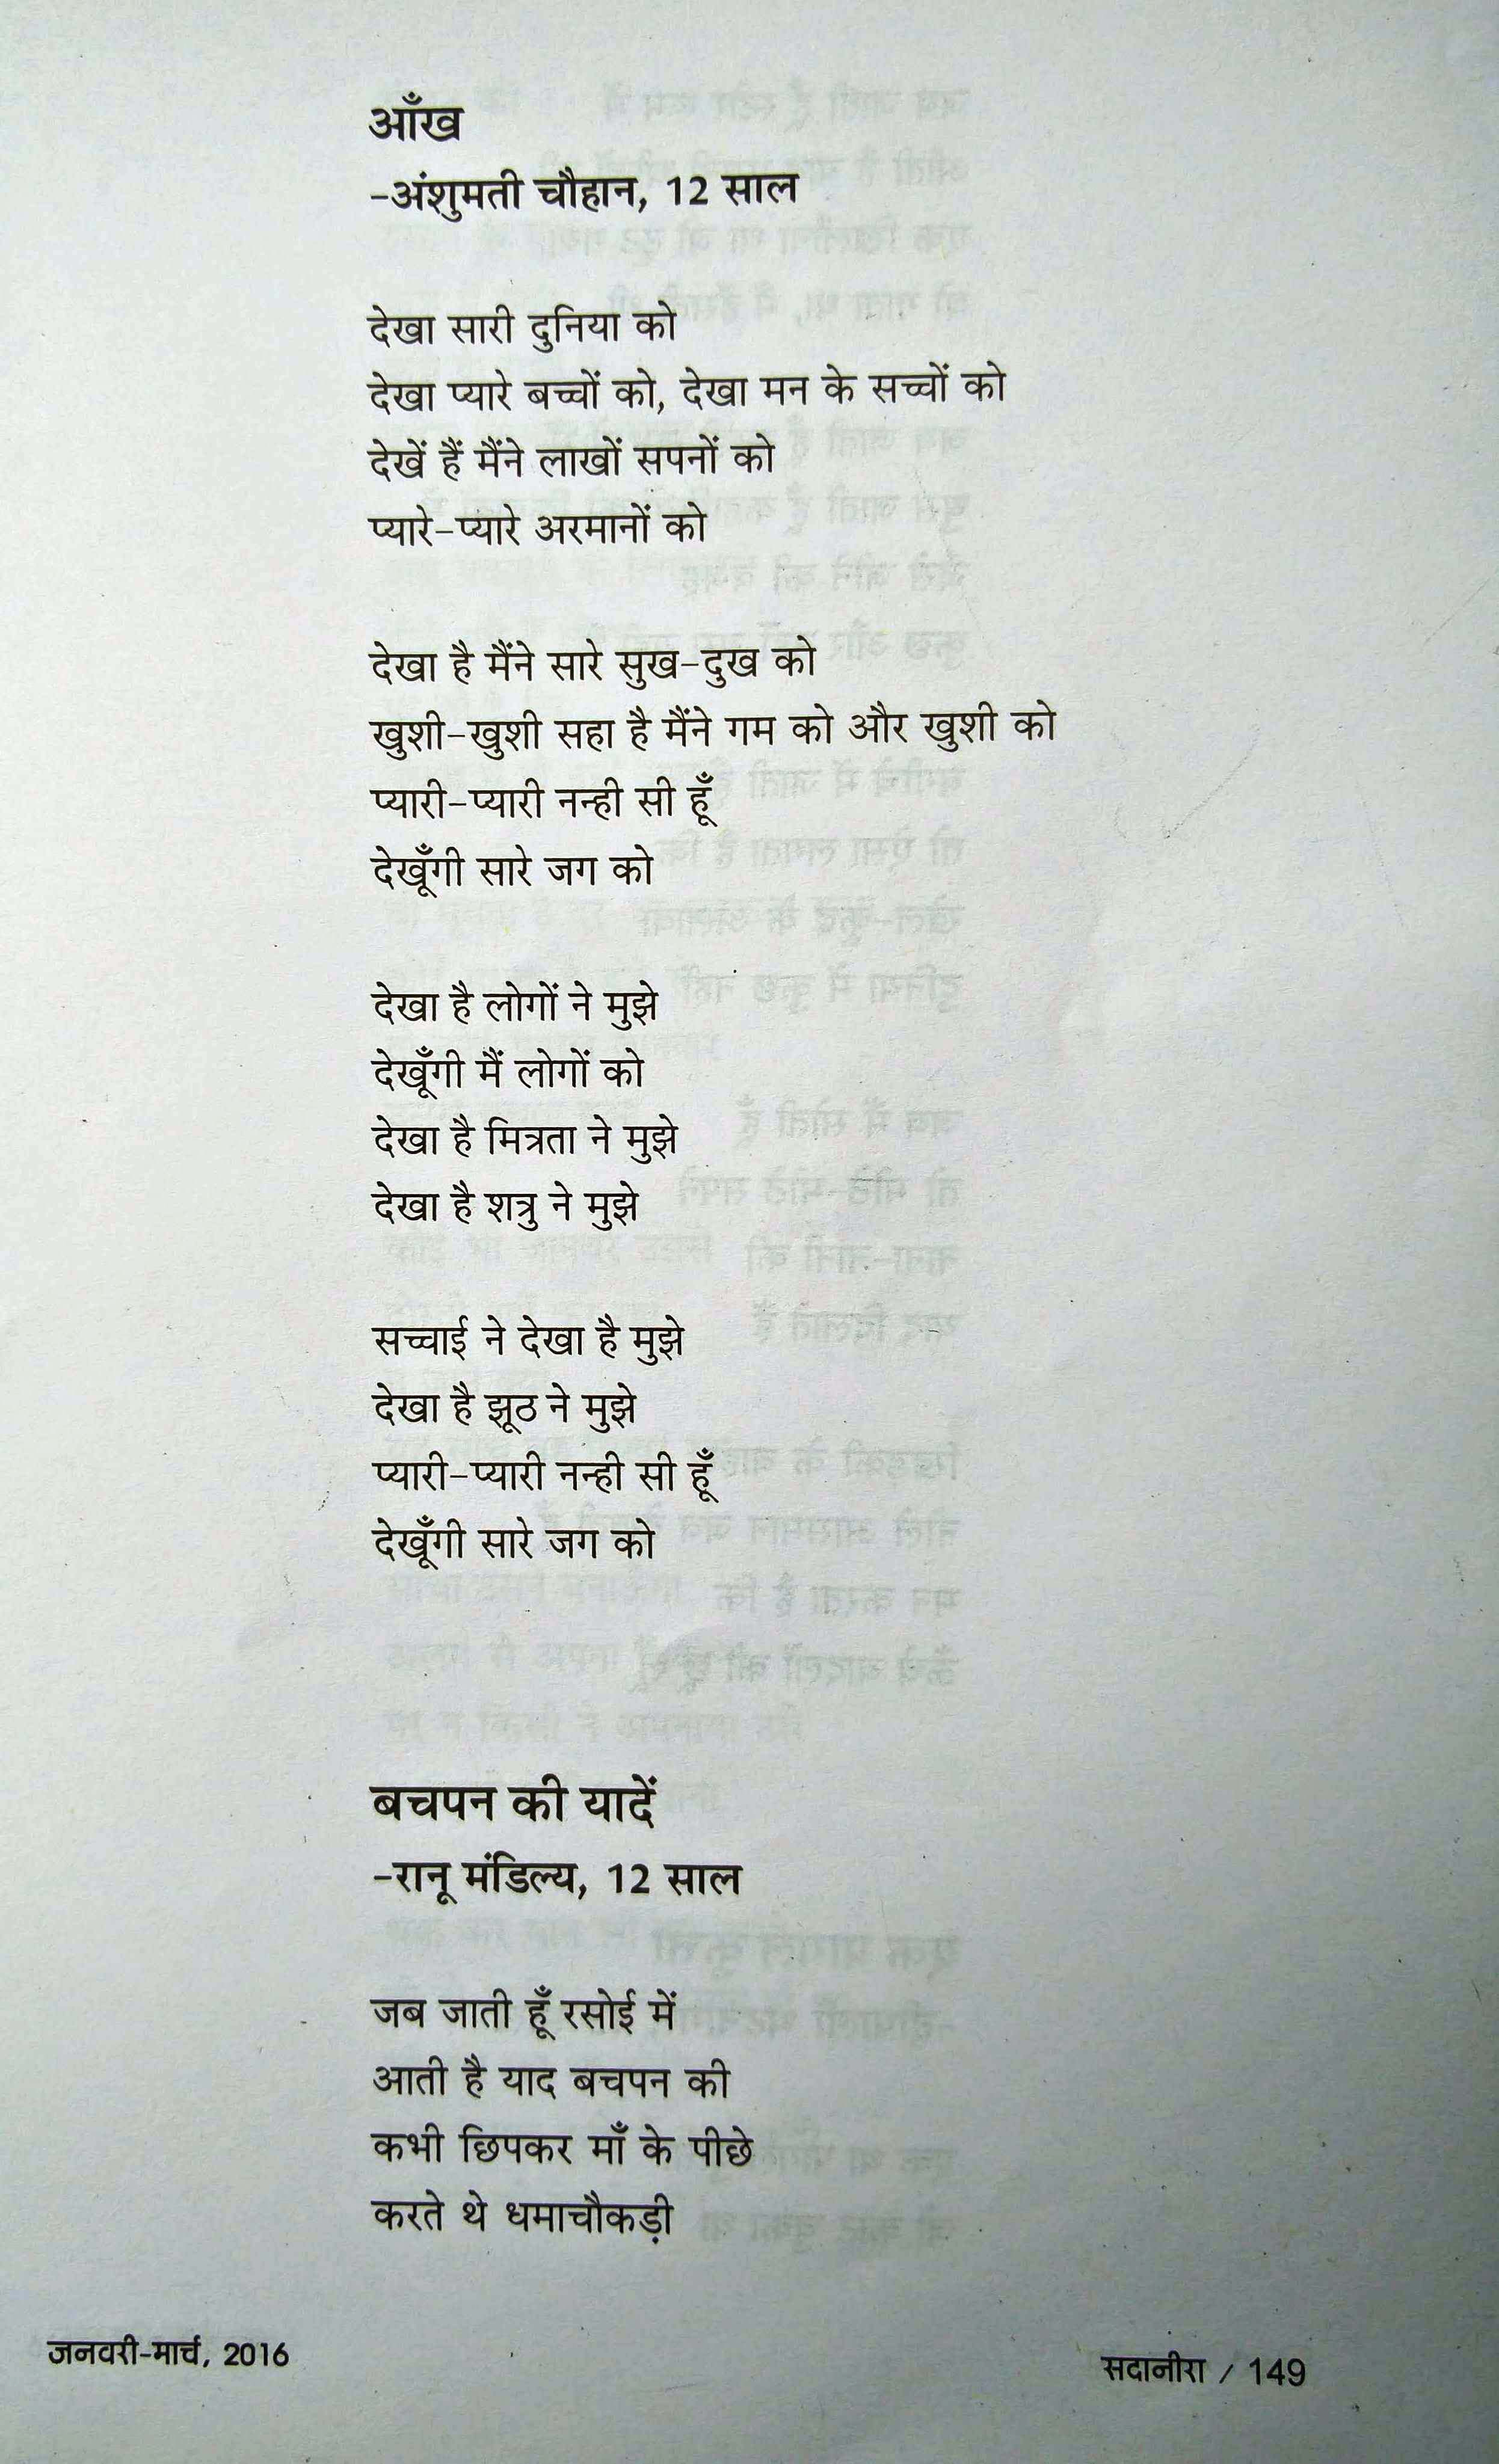 आँख
-अंशुमती चौहान, 12 साल
देखा सारी दुनिया को
देखा प्यारे बच्चों को, देखा मन के सच्चों को
देखें हैं मैंने लाखों सपनों को
प्यारे-प्यारे अरमानों को
देखा है मैंने सारे सुख-दुख को
खुशी-खुशी सहा है मैंने गम को और खुशी को
प्यारी-प्यारी नन्ही सी हूँ
देखूँगी सारे जग को
देखा है लोगों ने मुझे
देखूँगी मैं लोगों को
देखा है मित्रता ने मुझे
देखा है शत्रु ने मुझे
सच्चाई ने देखा है मुझे
देखा है झूठ ने मुझे
प्यारी-प्यारी नन्ही सी हूँ
देखूँगी सारे जग को
बचपन की यादें
-रानू मंडिल्य, 12 साल
जब जाती हूँ रसोई में
आती है याद बचपन की
कभी छिपकर माँ के पीछे
करते थे धमाचौकड़ी
जनवरी-मार्च, 2016
सदानीरा / 149